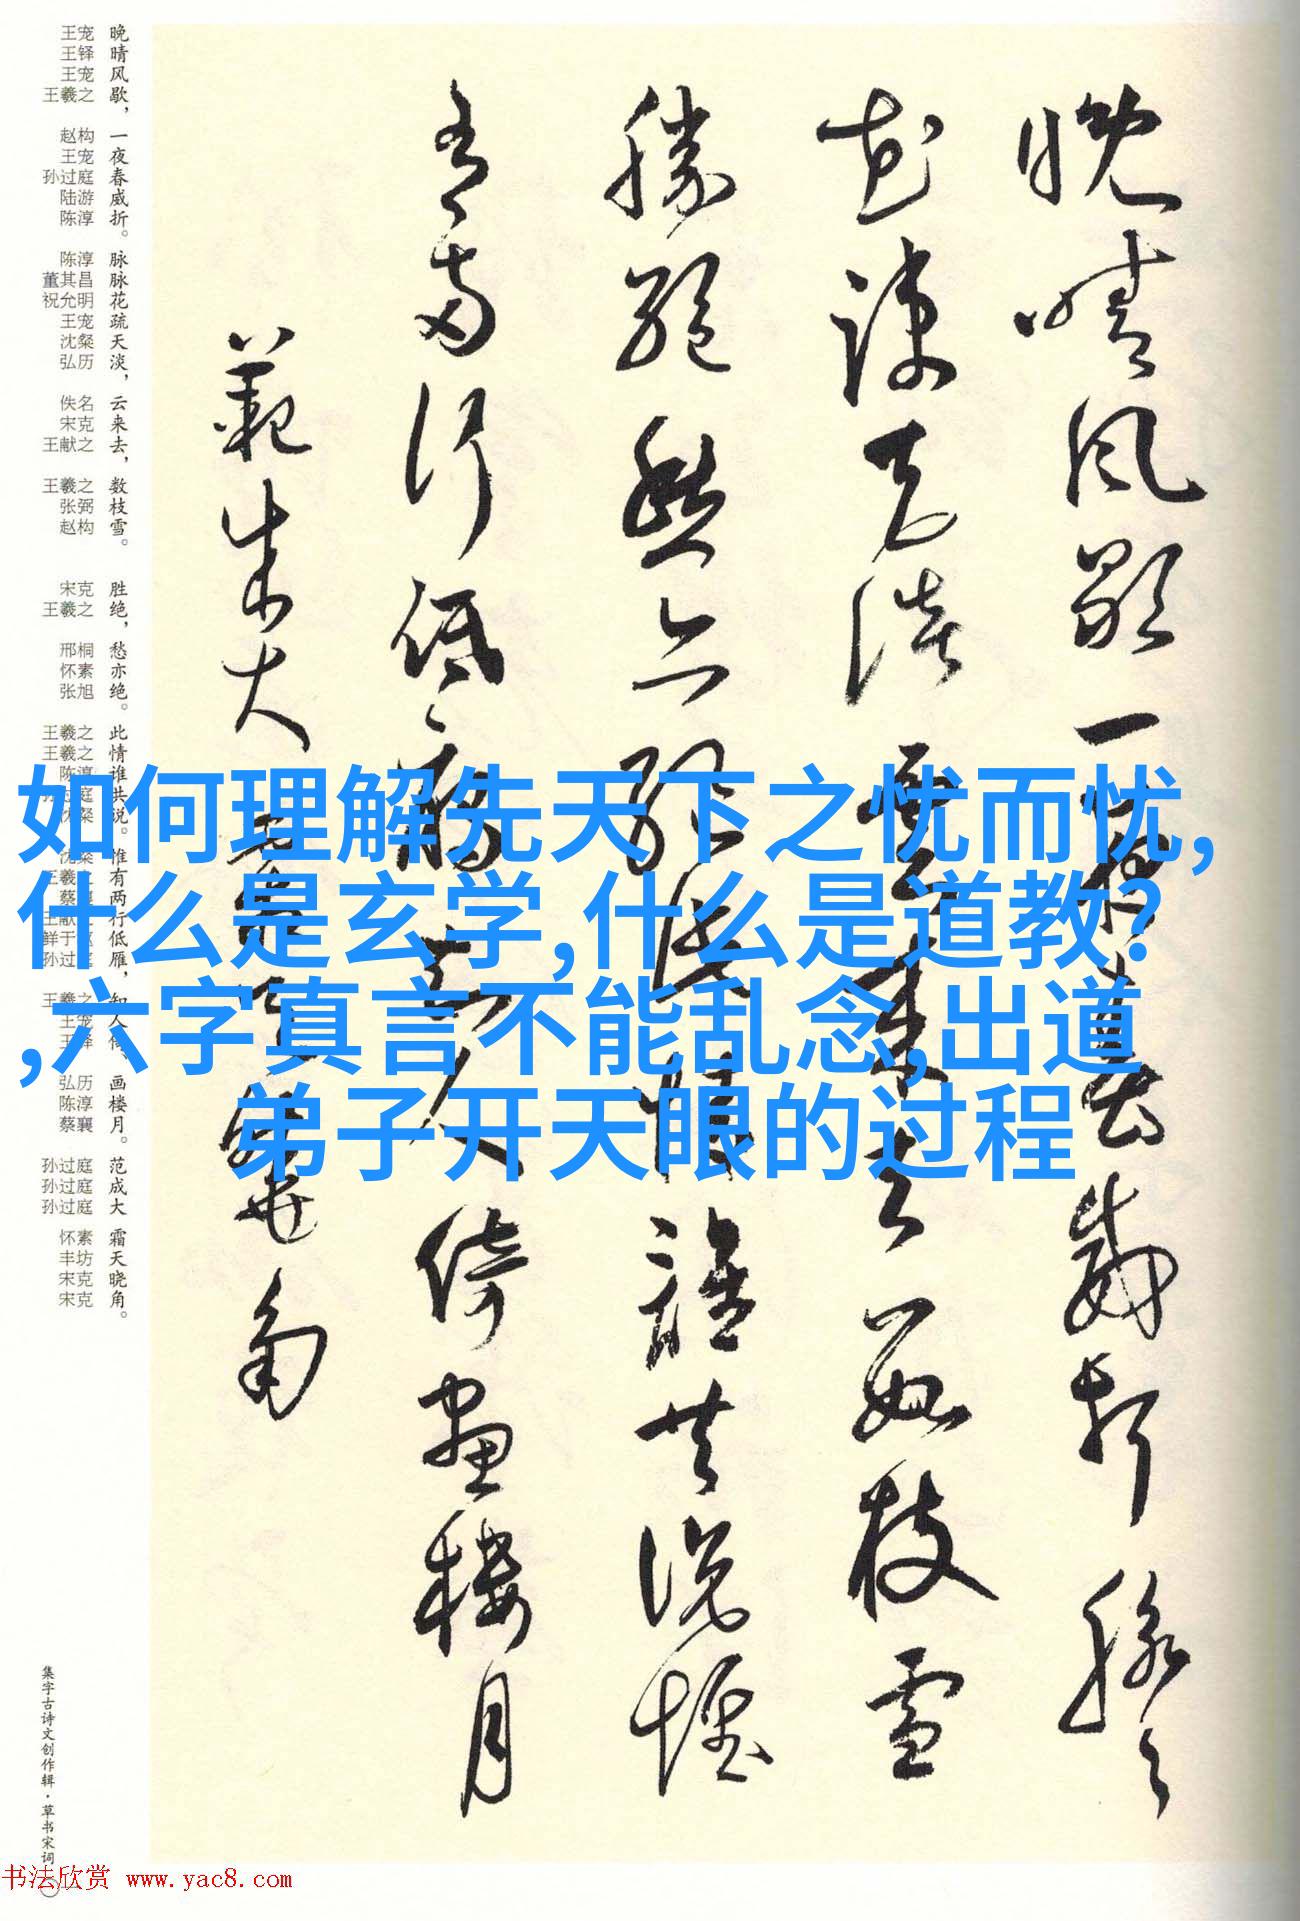 晚晴风歇，
一夜春威折。
脉脉花疏天淡，
云来去，
数枝雪。
胜绝，
愁亦绝。
此情谁共说。
惟有两行低雁，
知人倚、
画楼月。
范成大
霜天晓角。
王宠
王铎
王宠
王羲之
赵构
王宠
孙过庭
陆游
陈淳
陈淳
董其昌
祝允明
王宠
沈粲
弘历
佚名
宋克
王献之
王羲之
张弼
赵构
宋克
王羲之
邢桐
怀素
张旭
王羲之
王羲之
弘历
陈淳
蔡襄
孙过庭
孙过庭
孙过庭
怀素
丰坊
宋克
宋克
晚晴风歇一夜春威折脉脉
花疏天淡云来去数枝雪
胜绝愁亦绝此情谁共说惟
有两行低雁知人倚画楼月
范成大霜天晓角
如何理解先天下之忧而忧,
什么是玄学,什么是道教?
,六字真言不能乱念,出道
弟子开天眼的过程
集字古诗文创作辑·草书宋词
书法欣赏 www.yac8.com